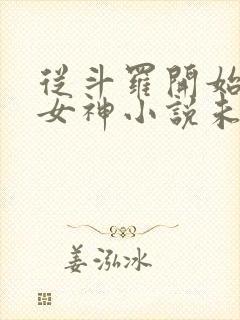 從斗羅開始
女神小說未
姜泓冰